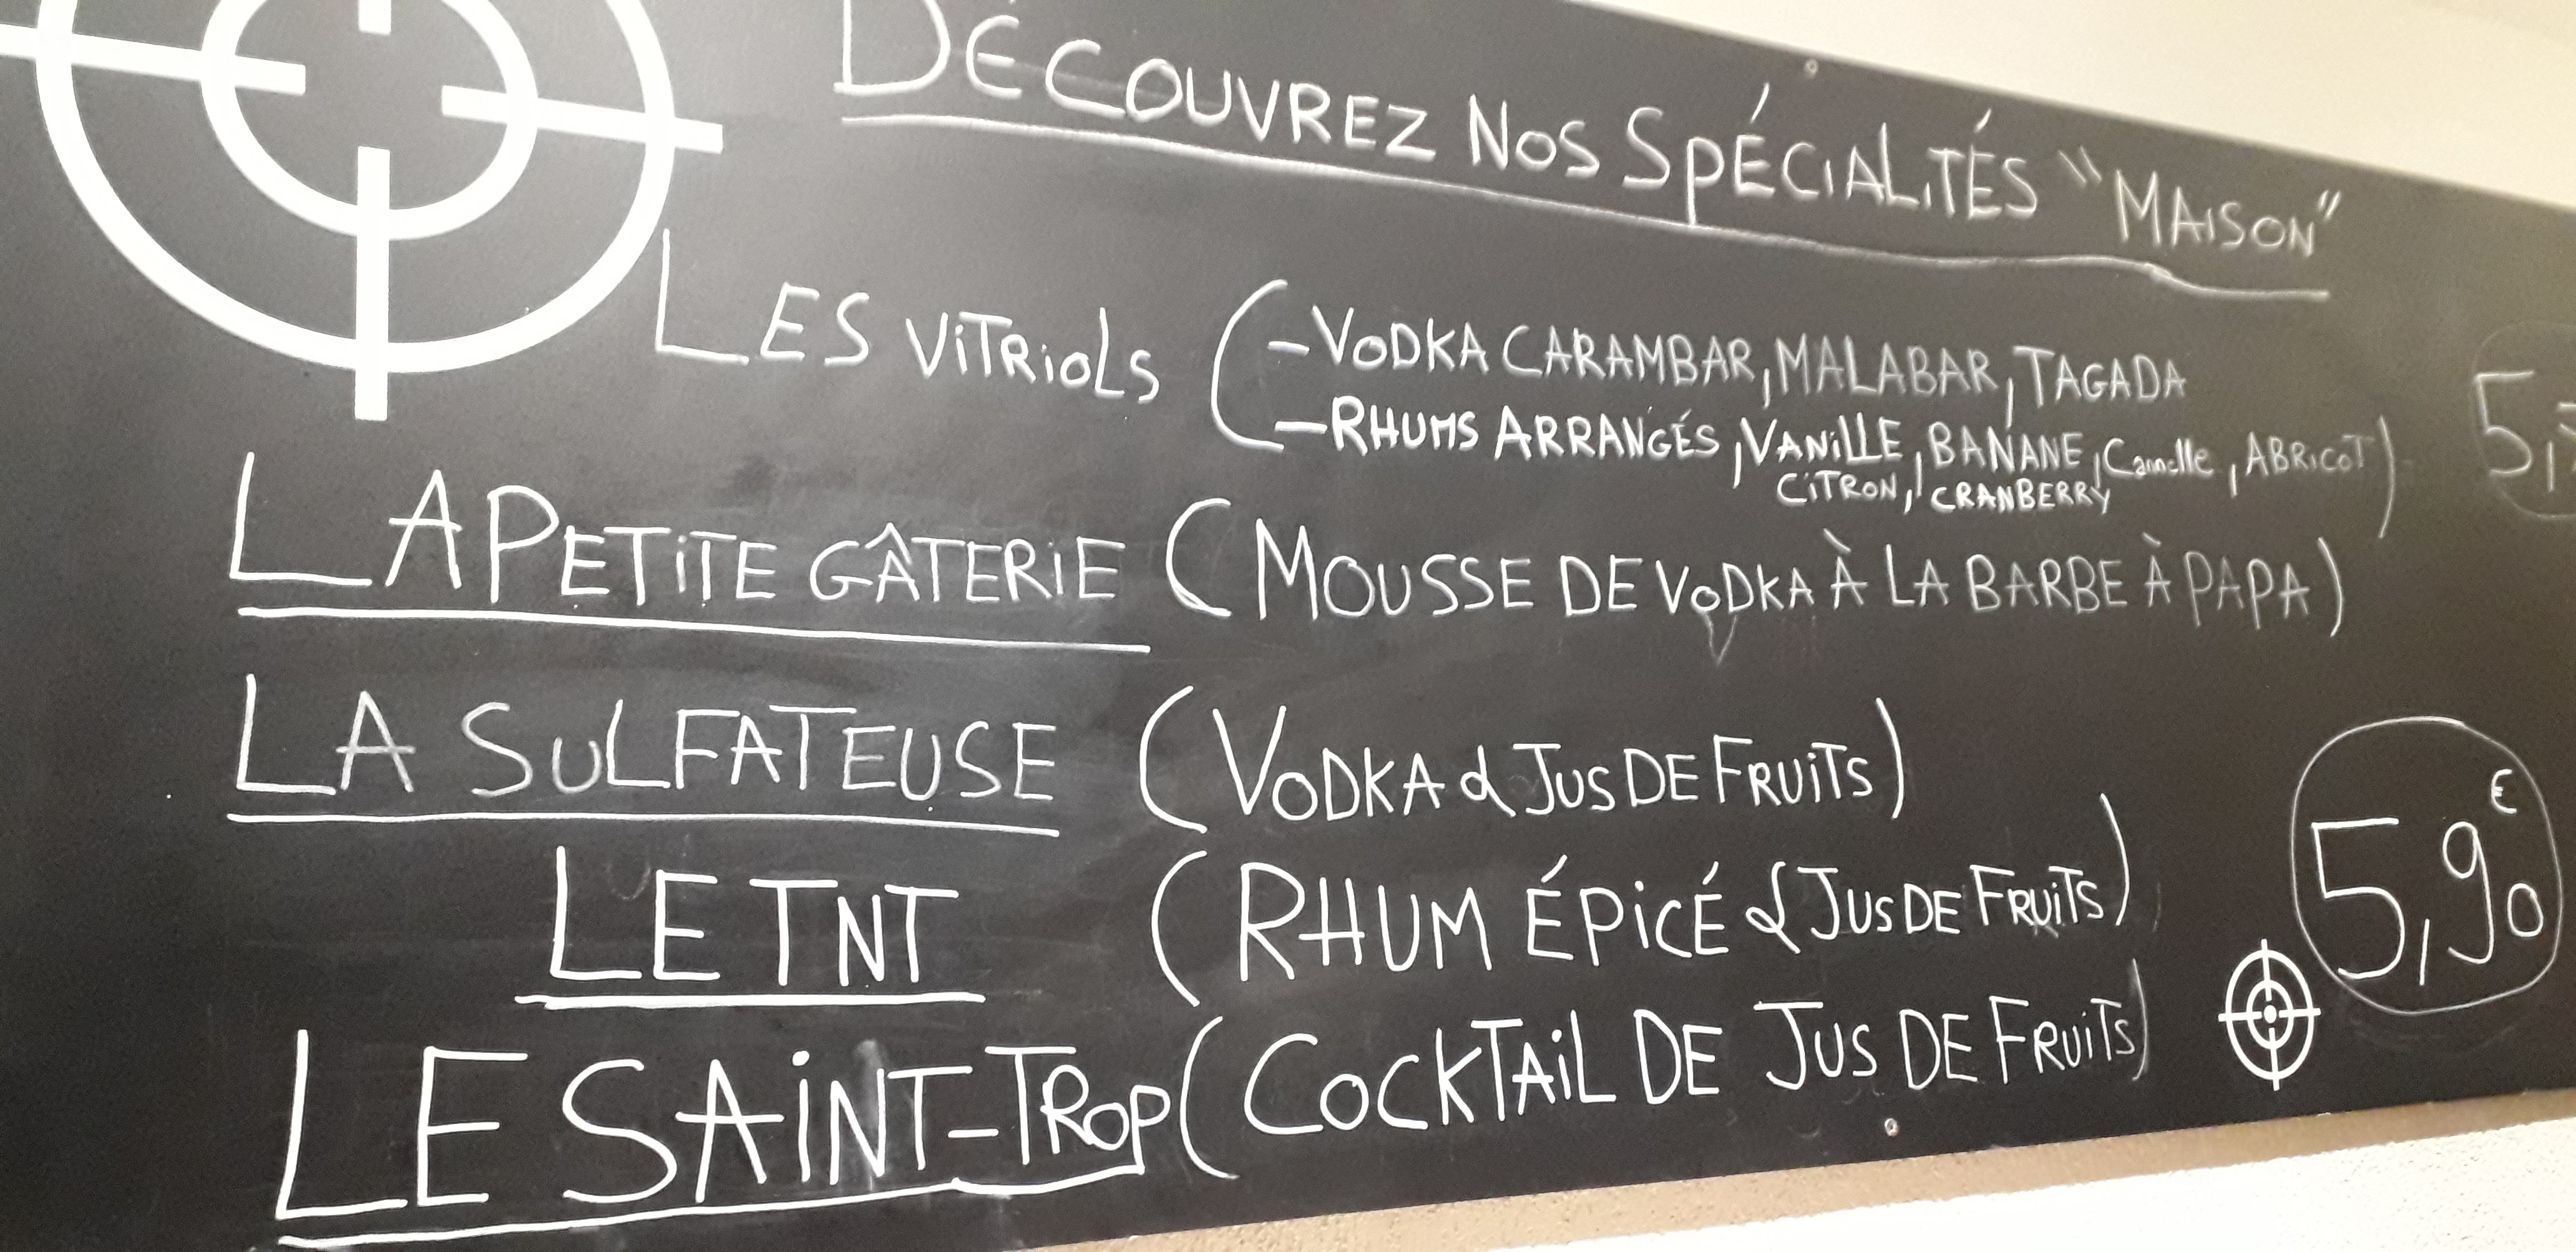 DÉCOUVREZ NOS SPÉCIALITÉS "MAISON"
LES VITRIOLS (-VODKA CARAMBAR, MALABAR, TAGADA
-RHUMS ARRANGÉS, VANILLE, BANANE, Cannelle, ABRICOT)
CITRON, CRANBERRY
LA PETITE GÂTERIE (MOUSSE DE VODKA À LA BARBE À PAPA)
LA SULFATEUSE (VODKA & JUS DE FRUITS)
LE TNT (RHUM ÉPICÉ & JUS DE FRUITS)
5,90€
LE SAINT-TROP (COCKTAIL DE JUS DE FRUITS)